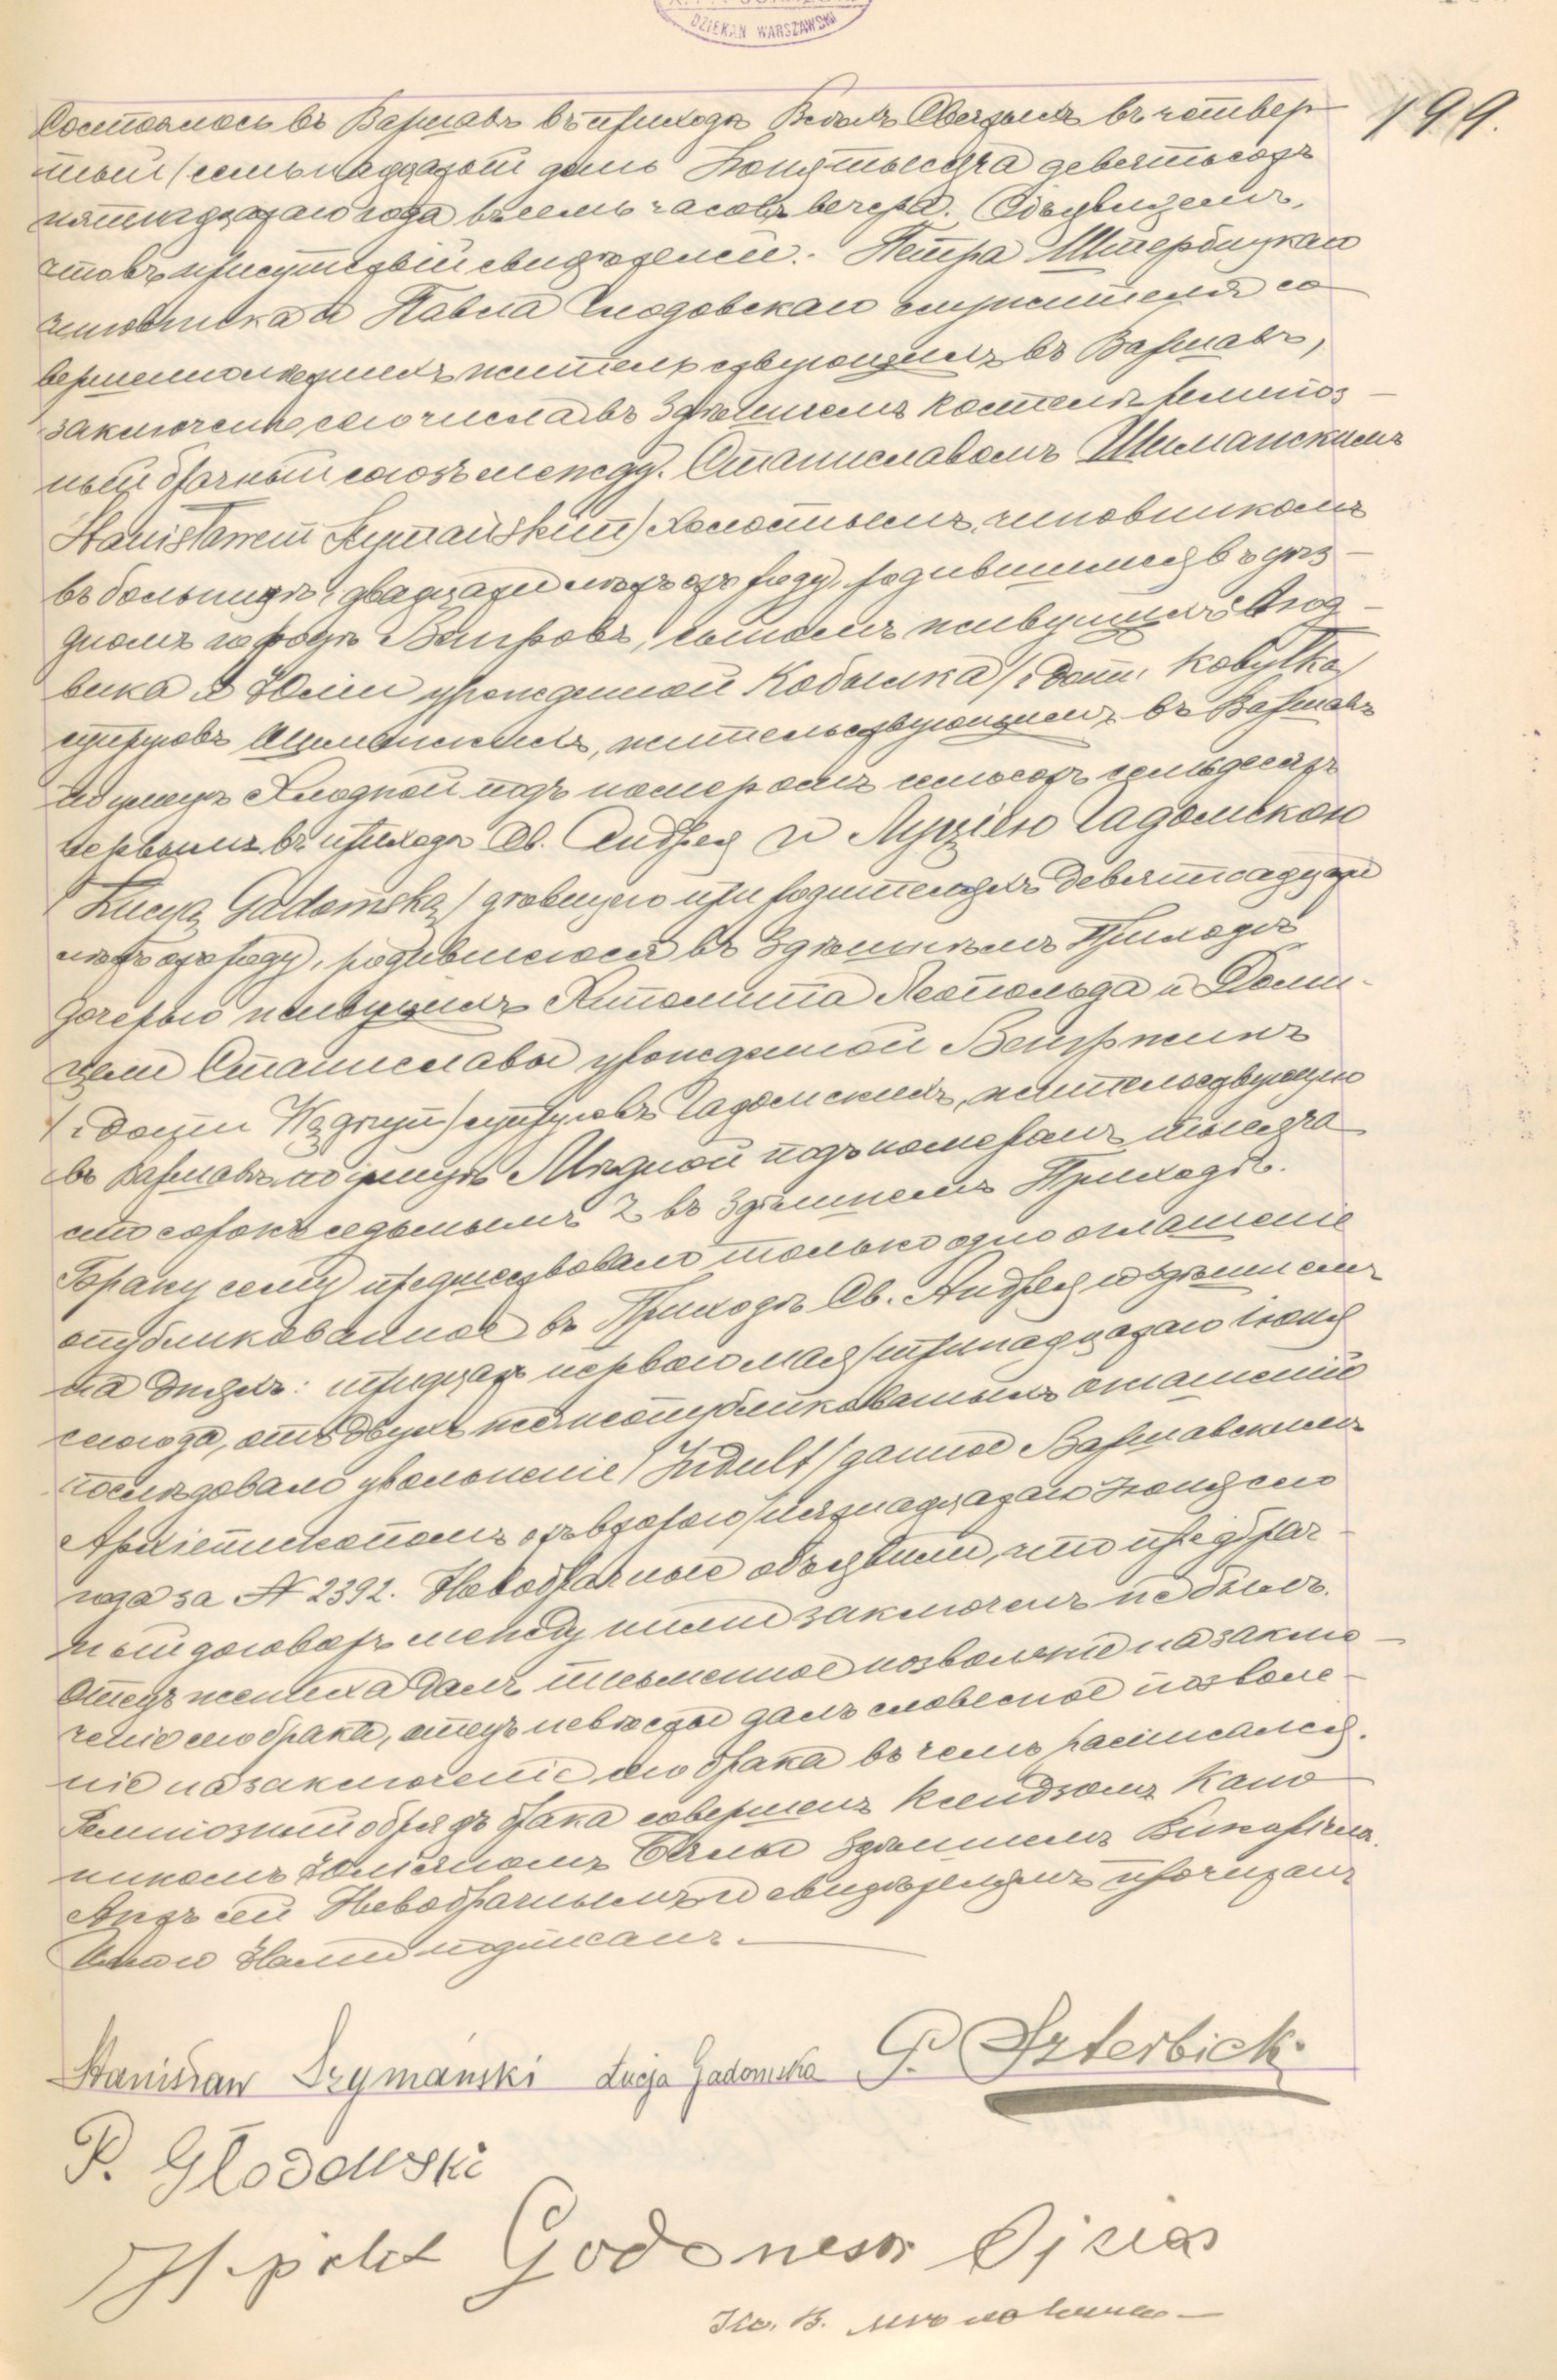 DZIEKAN WARSZAWSKI
199.
Состоялось въ Варшавѣ въ приходѣ Всѣхъ Святыхъ въ четвер-
тый /семьнадцатый день Іюня тысяча девятьсотъ
пятнадцатаго года въ семь часовъ вечера. Объявляемъ,
что въ присутствіи свидѣтелей: Петра Штербицкаго
чиновника и Павла Глодовскаго служителя со-
вершеннолѣтнихъ жительствующихъ въ Варшавѣ,
заключенъ сего числа въ здѣшнемъ костелѣ религіоз-
ный брачный союзъ между: Станиславомъ Шиманскимъ
Stanisławem Szymańskim/ холостымъ, чиновникомъ
въ больницѣ, двадцати лѣтъ отъ роду, родившимся въ уѣз-
дномъ городѣ Венгровѣ, сыномъ живущихъ Люд-
вика и Юліи урожденной Кобылка /z domu Kobyłka/
супруговъ Шиманскихъ, жительствующимъ въ Варшавѣ
по улицѣ Хлодной подъ номеромъ семьсотъ семьдесятъ
первымъ въ приходѣ Св. Андрея и Луціею Гадомскою
/Łucyą Gadomską/ дѣвицею при родителяхъ девятнадцати
лѣтъ отъ роду, родившеюся въ здѣшнемъ Приходѣ
дочерью живущихъ Ипполита Леопольда и Доми-
цели Станиславы урожденной
супруговъ Гадомскихъ, жительствующею
въ Варшавѣ по улицѣ Мѣдной подъ номеромъ тысяча
сто сорокъ седьмымъ въ здѣшнемъ Приходѣ.
Браку сему предшествовало только одно оглашеніе
опубликованное въ Приходѣ Св. Андрея и здѣшнемъ
на дняхъ: тридцать перваго мая /тринадцатаго іюня
сего года, отъ двухъ же неопубликованныхъ оглашеній
послѣдовало увольненіе /Indult/ данное Варшавскимъ
Архіепископомъ отъ втораго /пятнадцатаго Іюня сего
года за № 2392. Новобрачные объявили, что предбрач-
ный договоръ между ними заключенъ не былъ.
Отецъ жениха далъ письменное позволеніе на заклю-
ченіе сего брака, отецъ невѣсты далъ словесное позволе-
ніе на заключеніе сего брака въ чемъ расписался.
Религіозный обрядъ брака совершенъ Ксендзомъ Кано-
никомъ Юліяномъ здѣшнемъ Викаріемъ.
Актъ сей Новобрачнымъ и свидѣтелямъ прочитанъ
Нами подписанъ.
Stanisław Szymański Łucja Gadomska P. Szterbicki
P. Głodowski
Hipolit Gadomski Ojciec